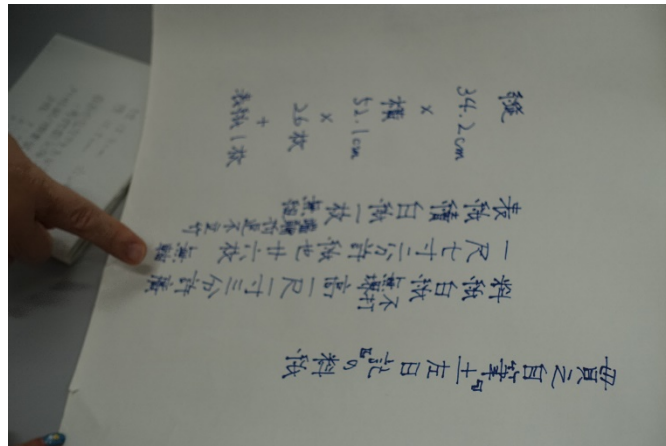 貫之自筆本土左日記の料紙
料紙白紙 不打無堺 高一尺一寸三分許廣
一尺七寸二分許紙也廿六枚 無軸
表紙續白紙一枚 端聊折返不立竹無紐
縦
34.2cm
×
横
52.1cm
×
26枚
+
表紙1枚